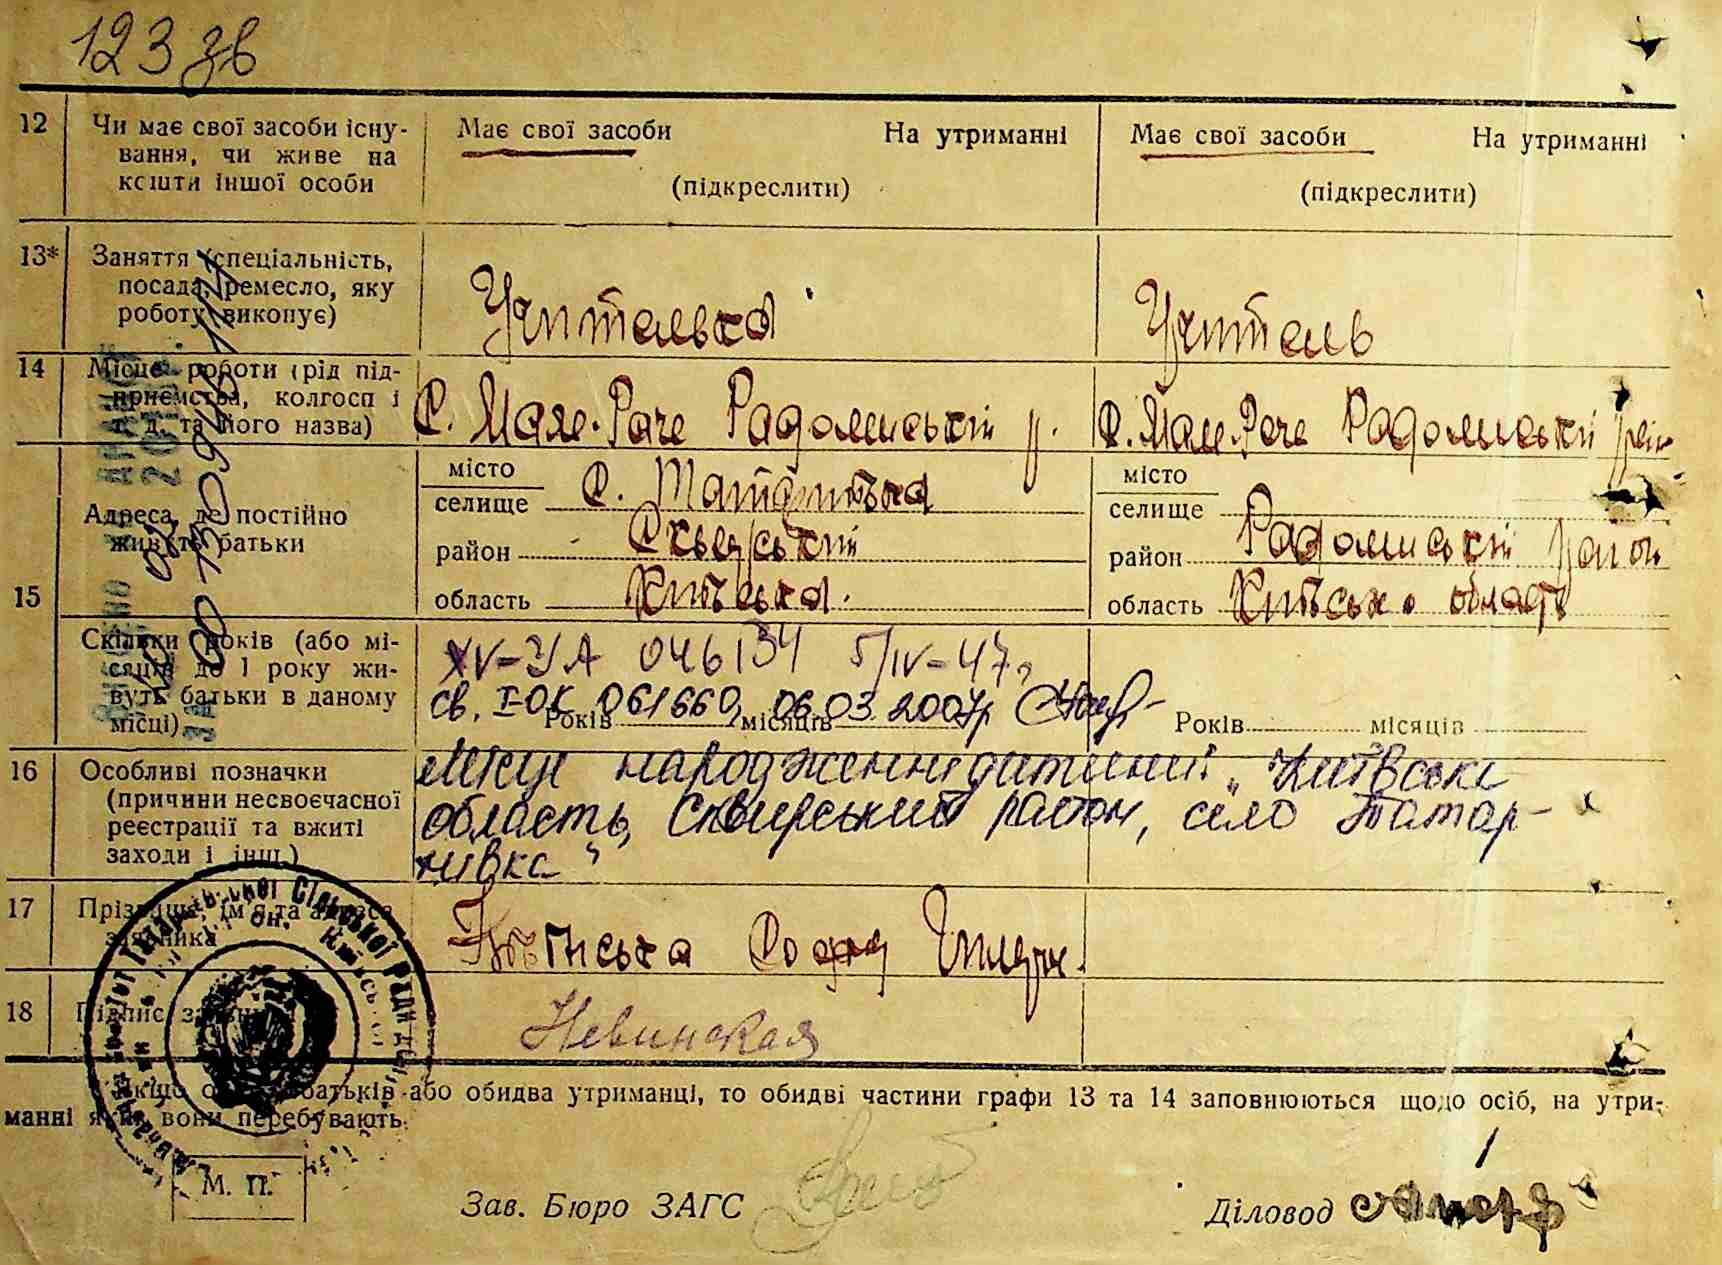 123 зв
12 Чи має свої засоби існу-
вання, чи живе на
кошти іншої особи
Має свої засоби На утриманні
(підкреслити)
Має свої засоби На утриманні
(підкреслити)
13* Заняття (спеціальність,
посада, ремесло, яку
роботу виконує)
Учителька
Учитель
14 Місце роботи (рід під-
приємства, колгосп і
т. д. та його назва)
С. Мале-Раче Радомиський р.
С. Мале-Раче Радомиський
15 Адреса, де постійно
живуть батьки
місто
селище С.
район Сквирський
область Київська.
місто
селище
район Радомиський район
область Київська область
Скільки років (або мі-
сяців до 1 року жи-
вуть батьки в даному
місці)
XV-УА 046134 5/IV-47р
св. І-ОК 061660, 06.03.2007р
Років місяців
Років місяців
16 Особливі позначки
(причини несвоєчасної
реєстрації та вжиті
заходи і інш.)
Місце народження дитини: „Київська
область, Сквирський район, село Татар-
нівка“
17 Прізвище, ім'я та адреса
заявника
Софія
18 Підпис заявника
Невинская
Якщо батьків або обидва утриманці, то обидві частини графи 13 та 14 заповнюються щодо осіб, на утри-
манні яких вони перебувають.
М. П.
Зав. Бюро ЗАГС
Діловод